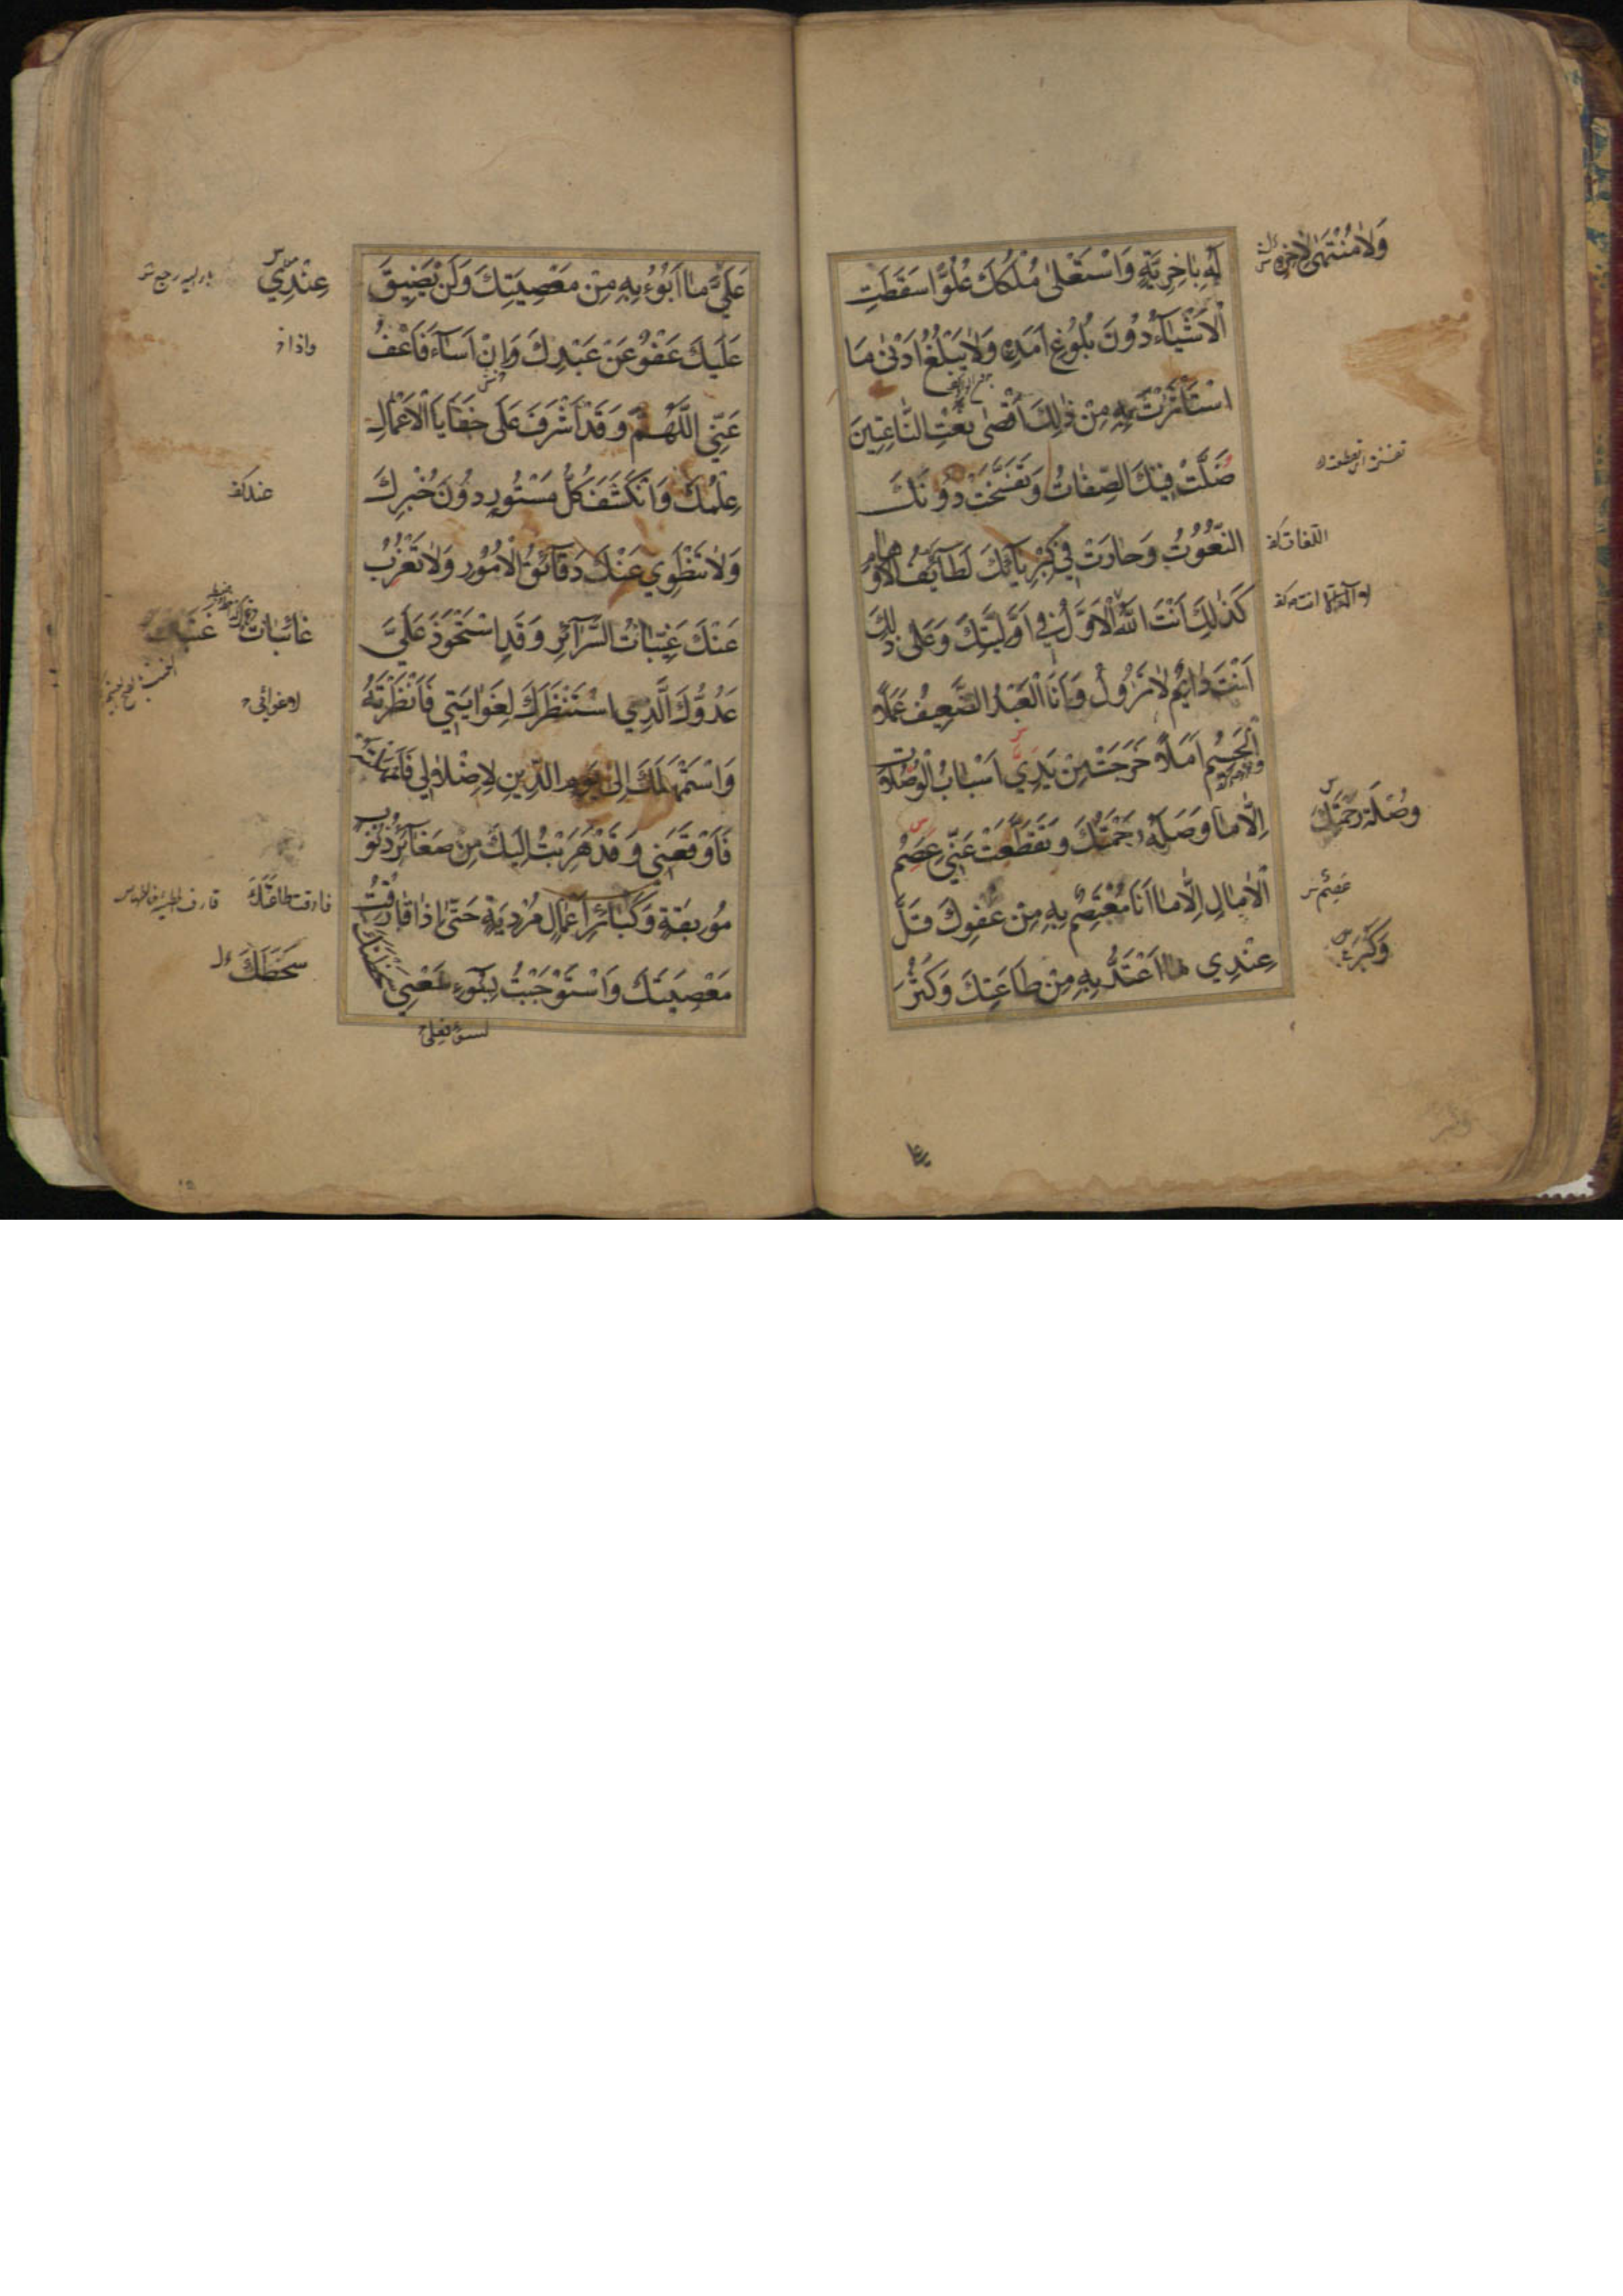 لَهُ بِاخِرِيَّةٍ وَاسْتَعْلىٰ مُلْكُكَ عُلُوًّا سَقَطَتِ
الْاَشْيَآءُ دُونَ بُلُوغِ اَمَدِهِ وَلَايَبْلُغُ اَدْنىٰ مَا
اسْتَأْثَرْتَ بِهِ مِنْ ذٰلِكَ اَقْصٰى نَعْتِ النَّاعِتِينَ
ضَلَّتْ فِيكَ الصِّفَاتُ وَتَفَسَّخَتْ دُونَكَ
النُّعُوتُ وَحَارَتْ فِي كِبْرِيَآئِكَ لَطَآئِفُ الْاَوْهَامِ
كَذٰلِكَ اَنْتَ اللّٰهُ الْاَوَّلُ فِي اَوَّلِيَّتِكَ وَعَلىٰ ذٰلِكَ
اَنْتَ دَائِمٌ لَاتَزُولُ وَاَنَا الْعَبْدُ الضَّعِيفُ عَمَلًا
الْجَسِيمُ اَمَلًا خَرَجَتْ مِنْ يَدِي اَسْبَابُ الْوُصُلَاتِ
اِلَّا مَا وَصَلَهُ رَحْمَتُكَ وَتَقَطَّعَتْ عَنِّي عِصَمُ
الْاٰمَالِ اِلَّا مَا اَنَا مُعْتَصِمٌ بِهِ مِنْ عَفْوِكَ قَلَّ
عِنْدِي مَا اَعْتَدُّ بِهِ مِنْ طَاعَتِكَ وَكَثُرَ
وَلَا مُنْتَهىٰ لِاٰخِرِهِ
وُصْلَةُ رَحْمَتِكَ
وَكَثُرَ
عَلَيَّ مَا اَبُوءُ بِهِ مِنْ مَعْصِيَتِكَ وَلَنْ يَضِيقَ
عَلَيْكَ عَفْوٌ عَنْ عَبْدِكَ وَاِنْ اَسَآءَ فَاعْفُ
عَنِّي اَللّٰهُمَّ وَقَدْ اَشْرَفَ عَلىٰ خَفَايَا الْاَعْمَالِ
عِلْمُكَ وَانْكَشَفَ كُلُّ مَسْتُورٍ دُونَ خُبْرِكَ
وَلَا تَنْطَوِي عَنْكَ دَقَآئِقُ الْاُمُورِ وَلَا تَعْزُبُ
عَنْكَ غَيِّبَاتُ السَّرَآئِرِ وَقَدِ اسْتَحْوَذَ عَلَيَّ
عَدُوُّكَ الَّذِي اسْتَنْظَرَكَ لِغَوَايَتِي فَاَنْظَرْتَهُ
وَاسْتَمْهَلَكَ اِلىٰ يَوْمِ الدِّينِ لِاِضْلَالِي فَاَمْهَلْتَهُ
فَاَوْقَعَنِي وَقَدْ هَرَبْتُ اِلَيْكَ مِنْ صَغَآئِرِ ذُنُوبٍ
مُوبِقَةٍ وَكَبَائِرِ اَعْمَالٍ مُرْدِيَةٍ حَتّٰى اِذَا قَارَفْتُ
مَعْصِيَتَكَ وَاسْتَوْجَبْتُ بِسُوٓءِ سَعْيِي سَخْطَتَكَ
عِنْدِي
واذا
عندك
غائبات
سَخَطَكَ